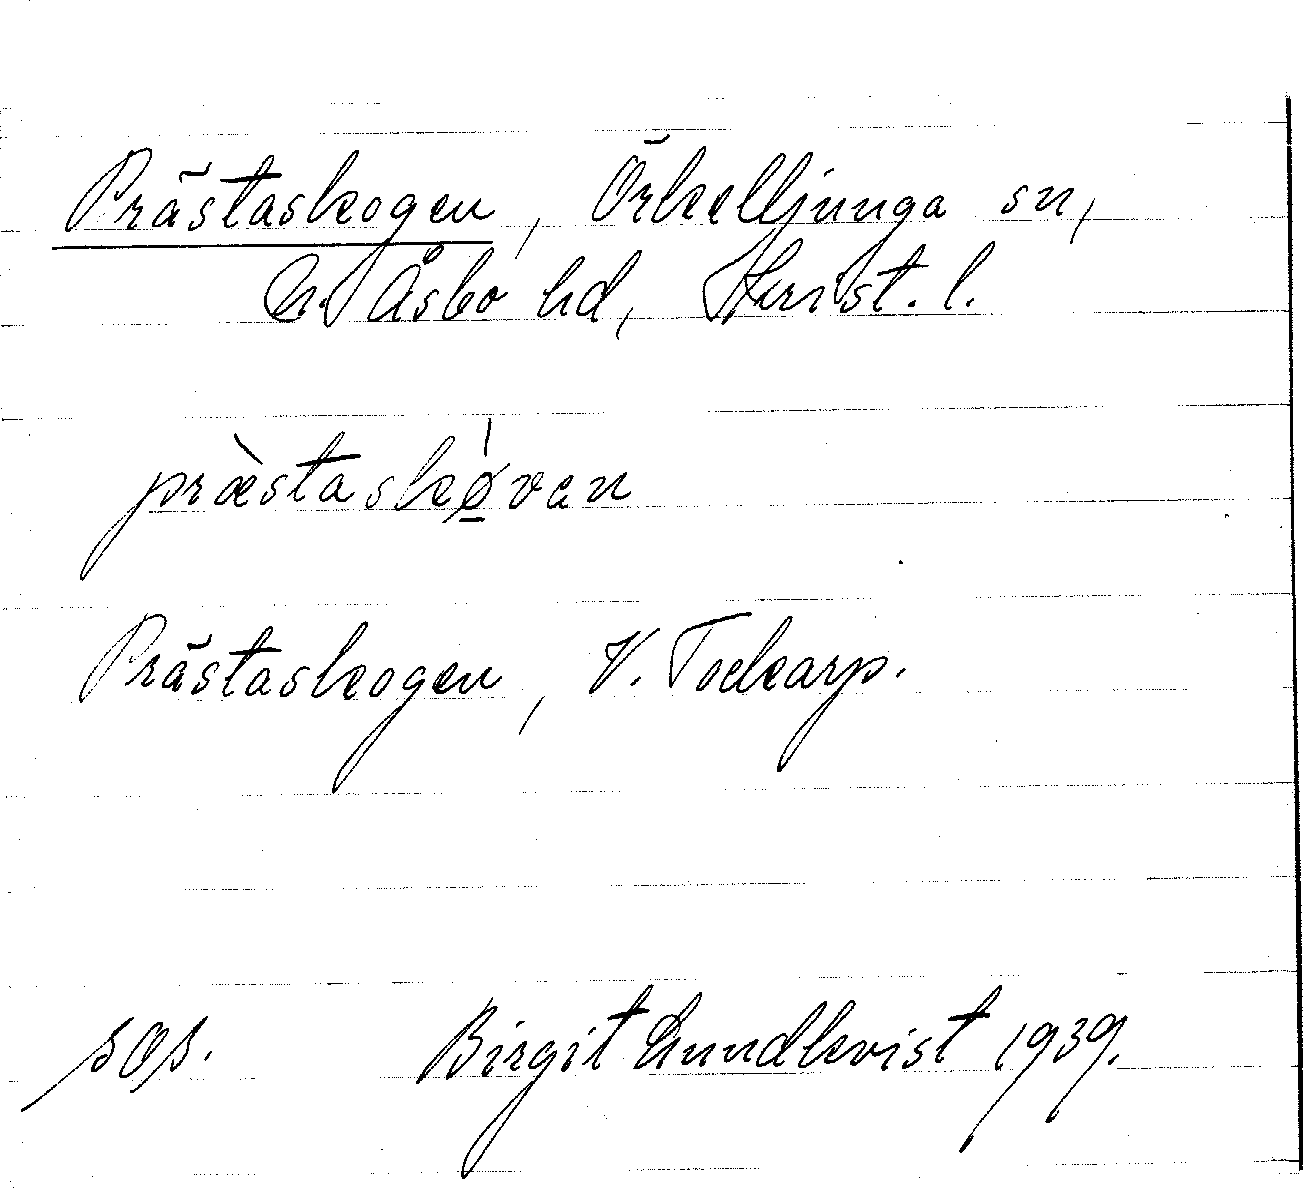 Prästaskogen, Örkelljunga sn,
N. Åsbo hd, Krist. l.
præ̀staskǿ̲van
Prästaskogen, V. Tockarp.
sos. Birgit Lundkvist 1939.